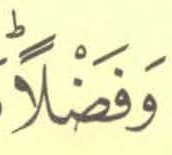 وَفَضْلًاؕ